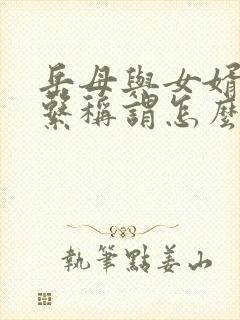 岳母與女婿
繫稱謂怎麼
執筆點姜山